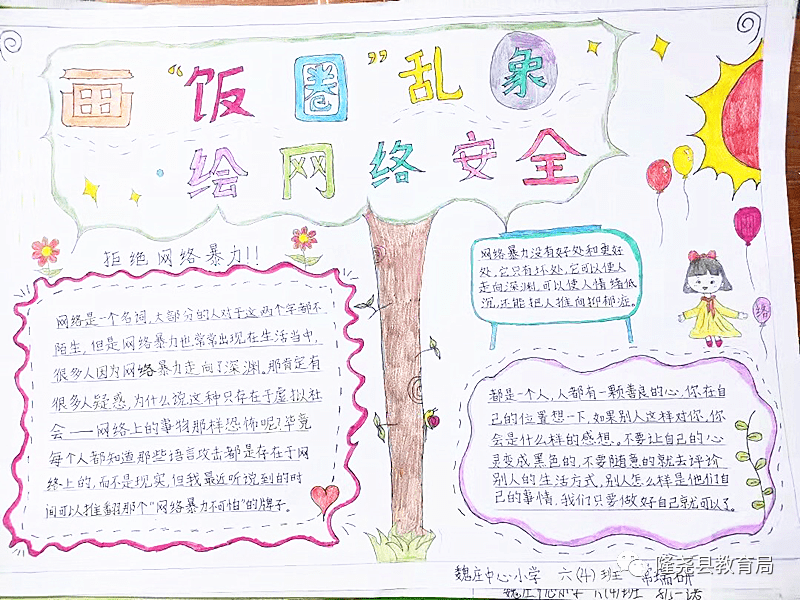 画“饭圈”乱象
绘网络安全
拒绝网络暴力!!
网络是一个名词,大部分的人对于这两个字都不
陌生,但是网络暴力也常常出现在生活当中,
很多人因为网络暴力走向了深渊。那肯定有
很多人疑惑,为什么说这种只存在于虚拟社
会——网络上的事物那样恐怖呢?毕竟
每个人都知道那些语言攻击都是存在于网
络上的,而不是现实,但我最近听说到的时
间可以推翻那个“网络暴力不可怕”的牌子。
网络暴力没有好处和更好
处,它只有坏处,它可以使人
走向深渊,可以使人情绪低
沉,还能把人推向抑郁症。
络
都是一个人,人都有一颗善良的心,你在自
己的位置想一下,如果别人这样对你,你
会是什么样的感想。不要让自己的心
灵变成黑色的,不要随意的就去评价
别人的生活方式,别人怎么样是他们自
己的事情,我们只要做好自己就可以了。
魏庄中心小学 六(4)班
隆尧县教育局